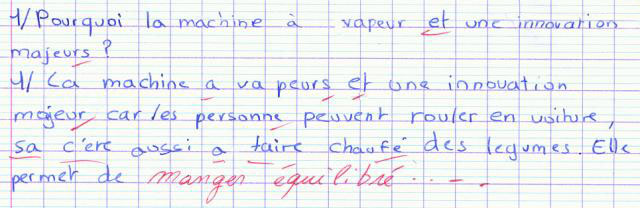 1/ Pourquoi la machine à vapeur et une innovation
majeurs ?
1/ La machine a va peurs et une innovation
majeur car les personne peuvent rouler en voiture,
sa c'erc aussi a faire chaufé des legumes. Elle
permet de manger équilibré.....